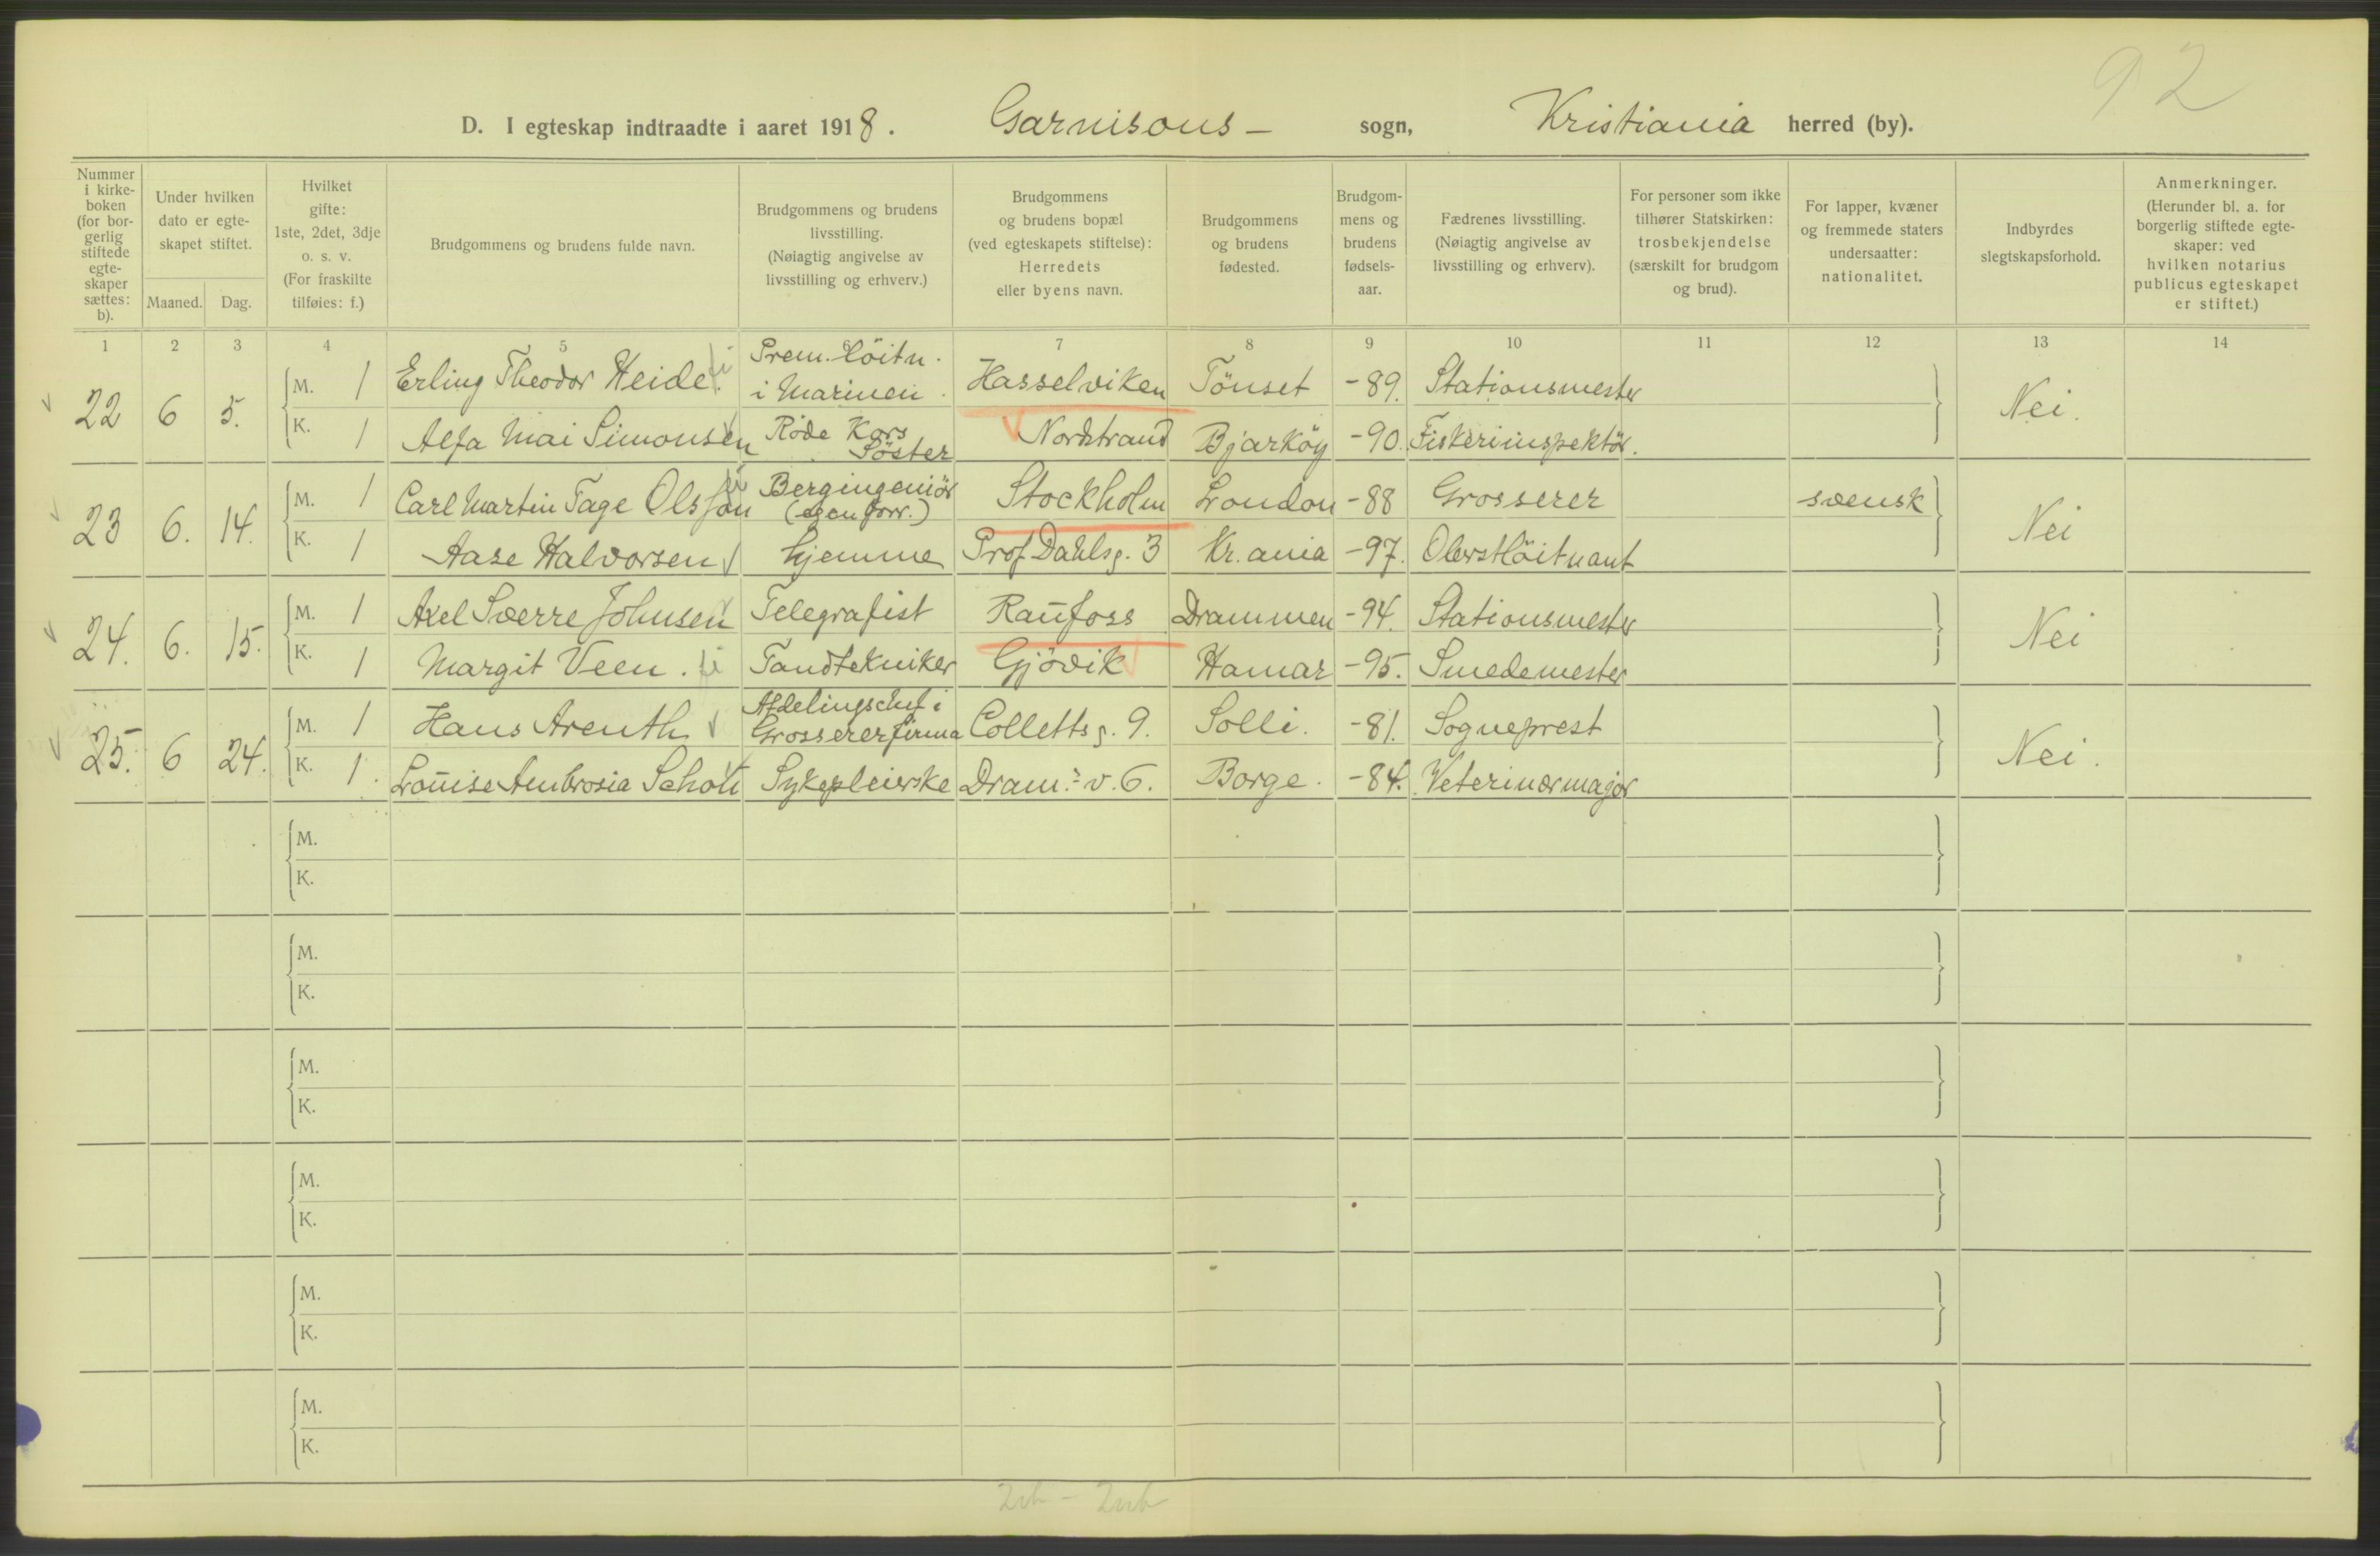 92
D. I egteskap indtraadte i aaret 1918. Garnisons- sogn, Kristiania herred (by).
Nummer i kirkeboken (for borgerlig stiftede egteskaper sættes: b).
Under hvilken dato er egteskapet stiftet.
Maaned. Dag.
Hvilket gifte: 1ste, 2det, 3dje o. s. v. (For fraskilte tilføies: f.)
Brudgommens og brudens fulde navn.
Brudgommens og brudens livsstilling. (Nøiagtig angivelse av livsstilling og erhverv.)
Brudgommens og brudens bopæl (ved egteskapets stiftelse): Herredets eller byens navn.
Brudgommens og brudens fødested.
Brudgommens og brudens fødselsaar.
Fædrenes livsstilling. (Nøiagtig angivelse av livsstilling og erhverv).
For personer som ikke tilhører Statskirken: trosbekjendelse (særskilt for brudgom og brud).
For lapper, kvæner og fremmede staters undersaatter: nationalitet.
Indbyrdes slegtskapsforhold.
Anmerkninger. (Herunder bl. a. for borgerlig stiftede egteskaper: ved hvilken notarius publicus egteskapet er stiftet.)
1 2 3 4 5 6 7 8 9 10 11 12 13 14
22 6 5.
M. 1 Erling Theodor Heide. Prem. löitn. i Marinen. Hasselviken Tönset -89. Stationsmester
K. 1 Alfa Mai Simonsen Röde Kors Söster Nordstrand Bjarköy -90. Fiskeriinspektör.
Nei.
23 6. 14.
M. 1 Carl Martin Tage Olsson Bergingeniör (egen forr.) Stockholm London -88 Grosserer svensk
K. 1 Aase Halvorsen hjemme Prof Dahlsg. 3 Kr.ania -97. Oberstlöitnant
Nei
24. 6. 15.
M. 1 Axel Sverre Johnsen Telegrafist Raufoss Drammen -94. Stationsmester
K. 1 Margit Veen. Tandtekniker Gjövik Hamar -95. Smedemester
Nei
25. 6 24.
M. 1 Hans Arenth Afdelingschef i Grossererfirma Colletts g. 9. Solli. -81. Sogneprest
K. 1. Louise Ambrosia Schou Sykepleierske Dram.s v. 6. Borge. -84. Veterinærmajor
Nei.
M.
K.
M.
K.
M.
K.
M.
K.
M.
K.
M.
K.